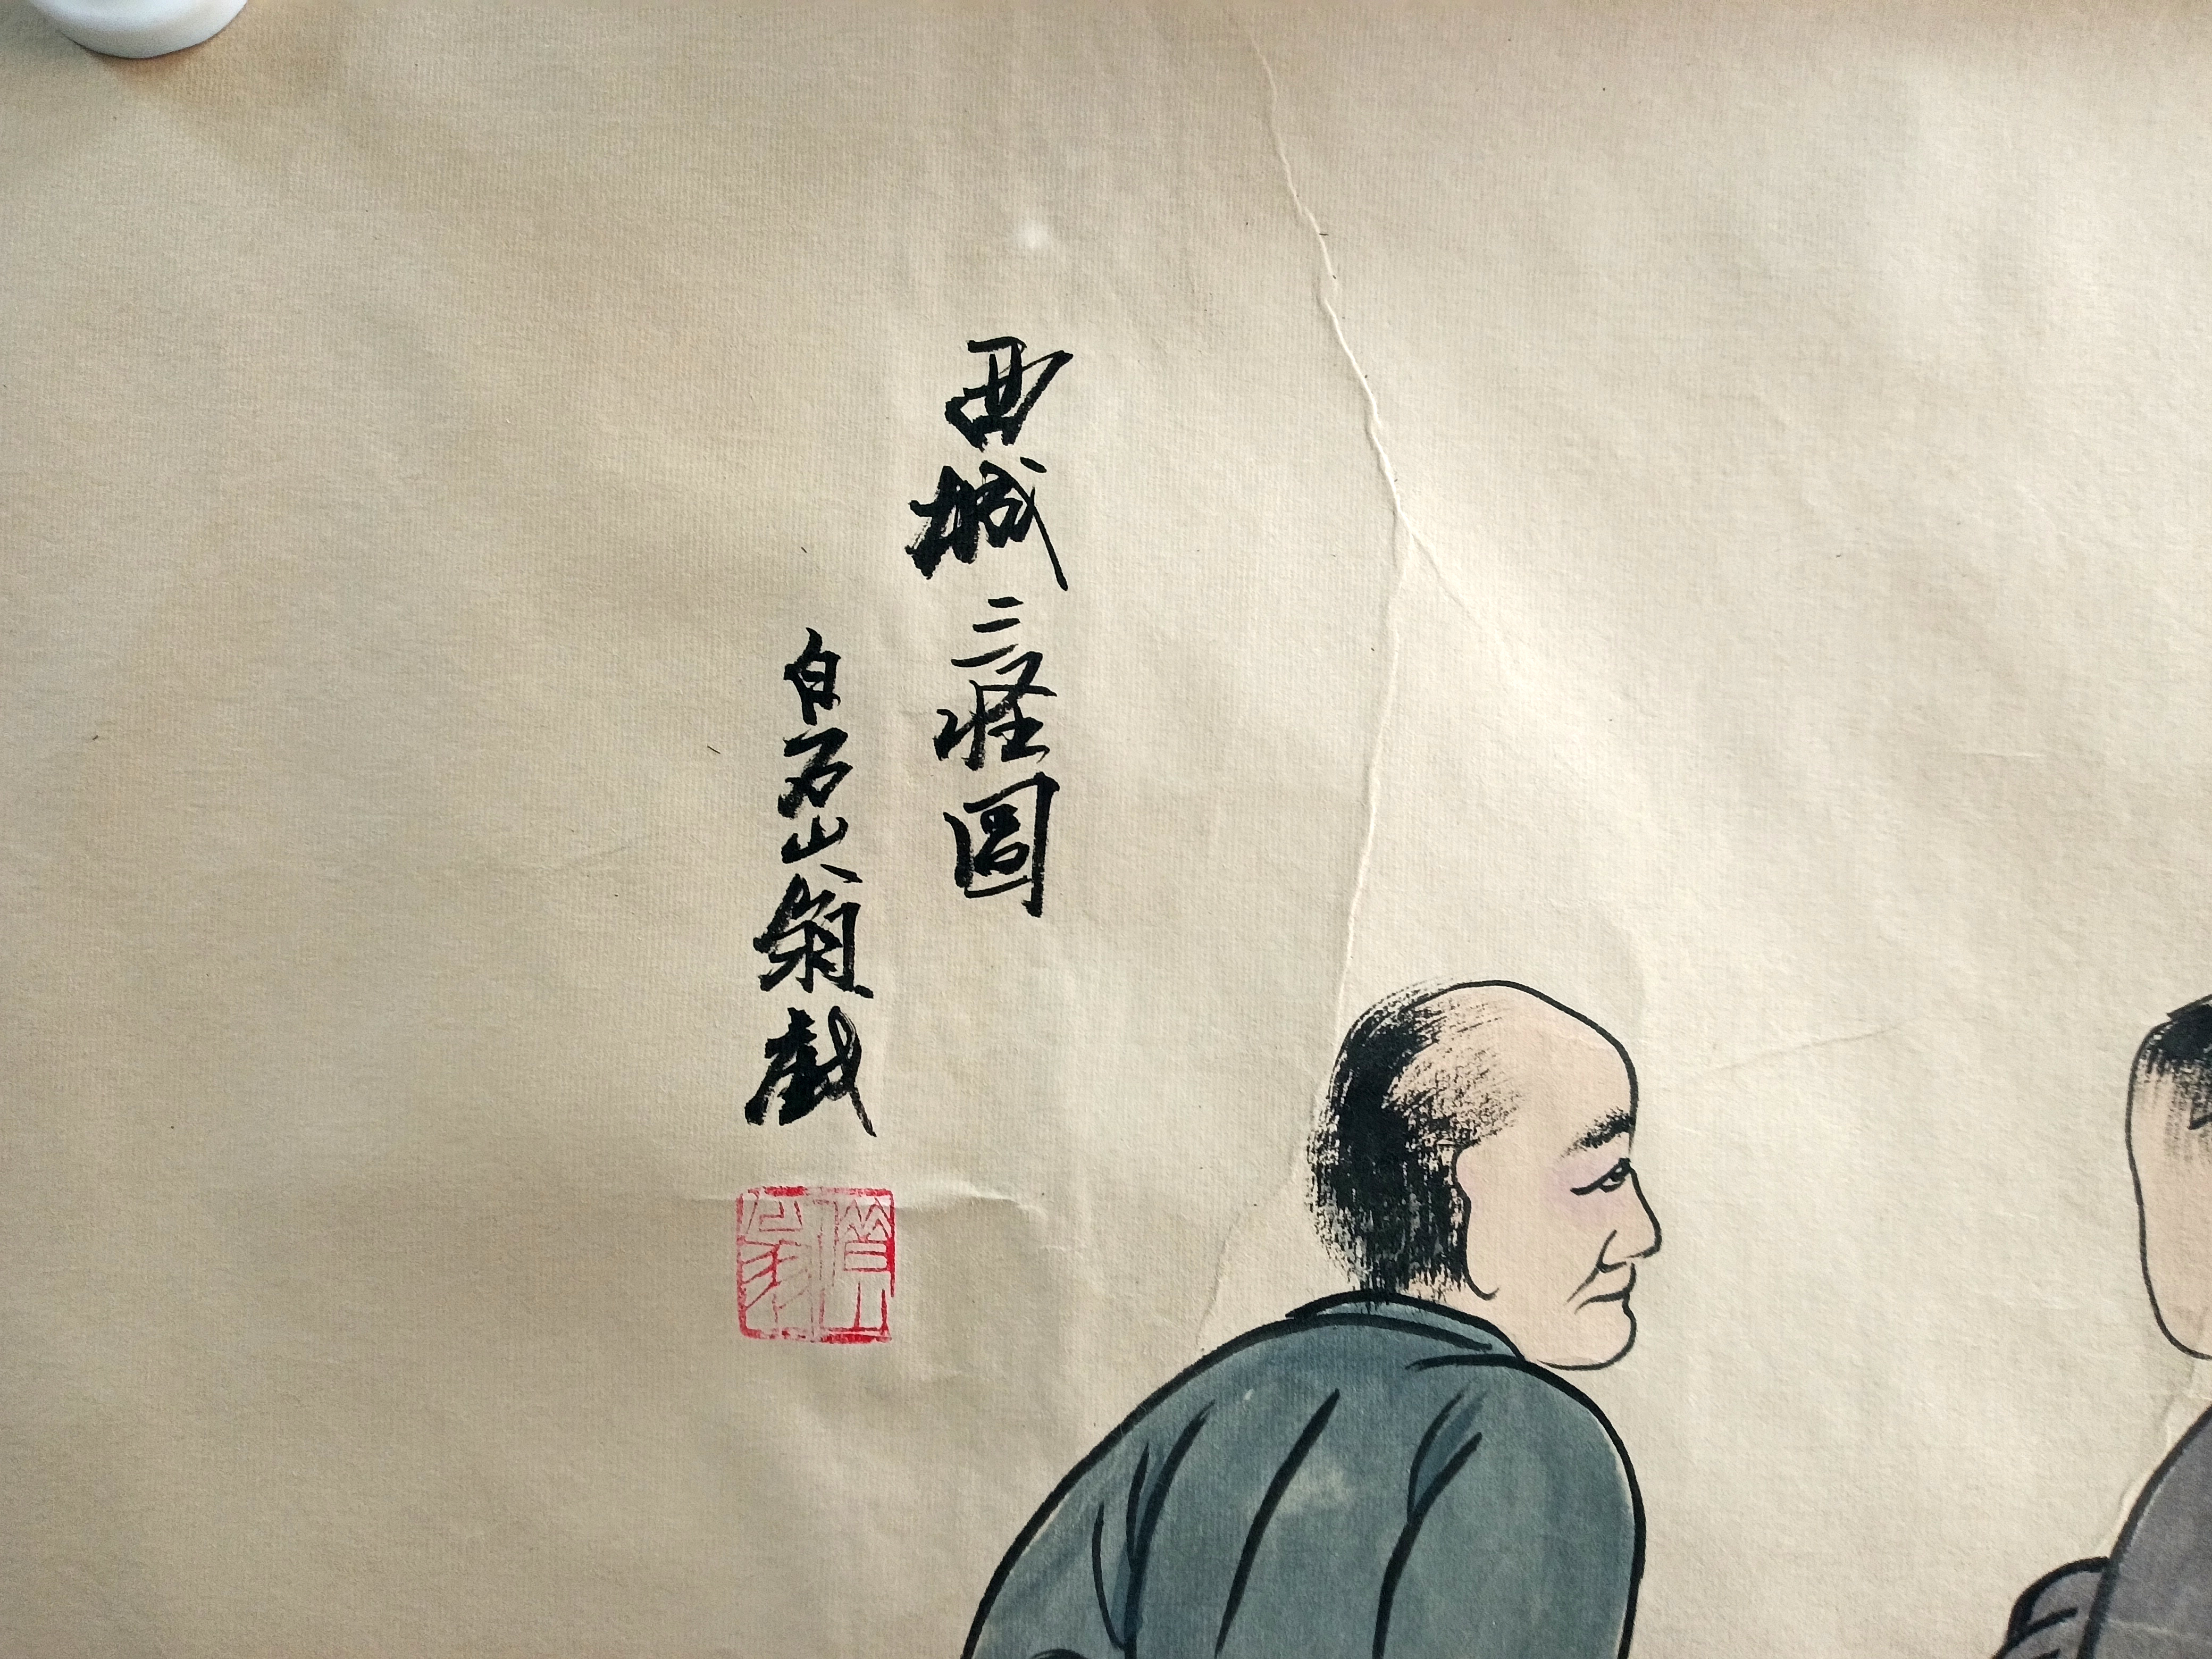 西城三怪圖
白石山翁戲